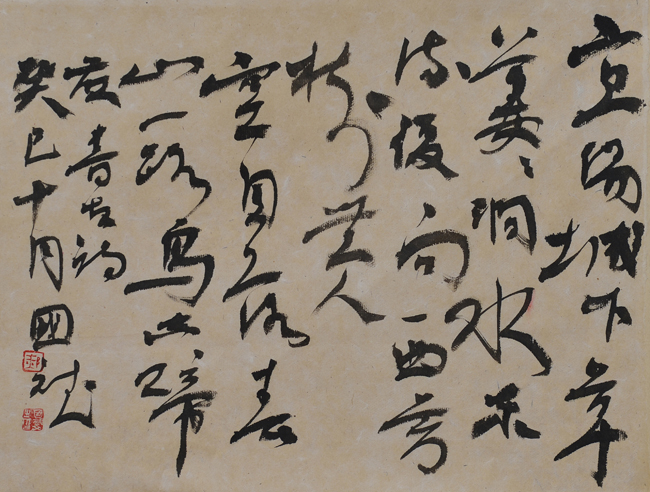 宜陽城下草
萋〻澗水東
流復向西芳
樹無人
空自落春
山一路鳥啼
古詩
癸巳十月國